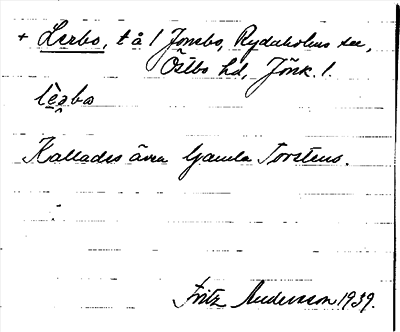 + Lerbo, t å 1 Jonsbo, Rydaholms sn,
Östbo hd, Jönk. l.
lèəbo
Kallades även Gamla Torstens.
Fritz Andersson 1939.